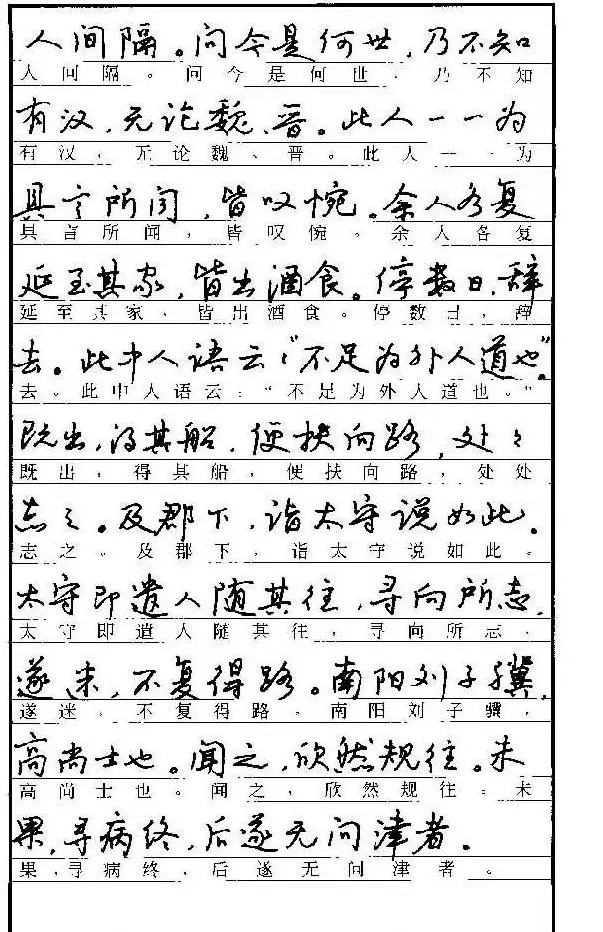 人间隔。问今是何世，乃不知
人间隔。问今是何世，乃不知
有汉，无论魏、晋。此人一一为
有汉，无论魏、晋。此人一一为
具言所闻，皆叹惋。余人各复
具言所闻，皆叹惋。余人各复
延至其家，皆出酒食。停数日，辞
延至其家，皆出酒食。停数日，辞
去。此中人语云：“不足为外人道也。”
去。此中人语云：“不足为外人道也。”
既出，得其船，便扶向路，处々
既出，得其船，便扶向路，处处
志之。及郡下，诣太守说如此。
志之。及郡下，诣太守说如此。
太守即遣人随其往，寻向所志，
太守即遣人随其往，寻向所志，
遂迷，不复得路。南阳刘子骥，
遂迷，不复得路。南阳刘子骥，
高尚士也。闻之，欣然规往。未
高尚士也。闻之，欣然规往。未
果，寻病终，后遂无问津者。
果，寻病终，后遂无问津者。